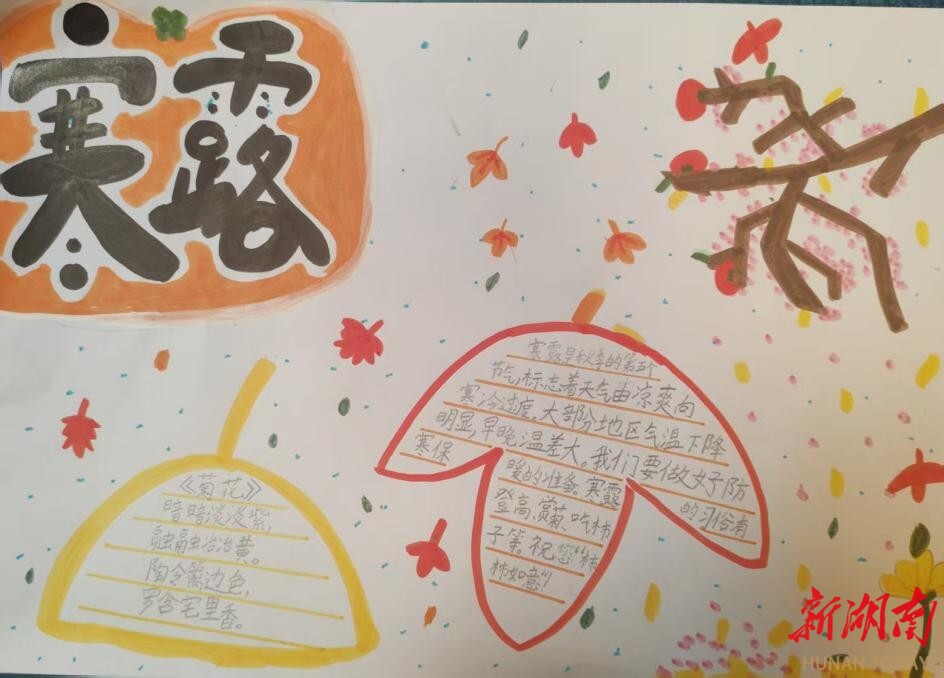 寒露
《菊花》
暗暗淡淡紫,
融融冶冶黄。
陶令篱边色,
罗含宅里香。
寒露是秋季的第五个
节气,标志着天气由凉爽向
寒冷过度。大部分地区气温下降
明显,早晚温差大。我们要做好防
寒保
暖的准备。寒露
的习俗有
登高、赏菊、吃柿
子等。祝您“柿
柿如意”!
新湖南
HUNAN TODAY